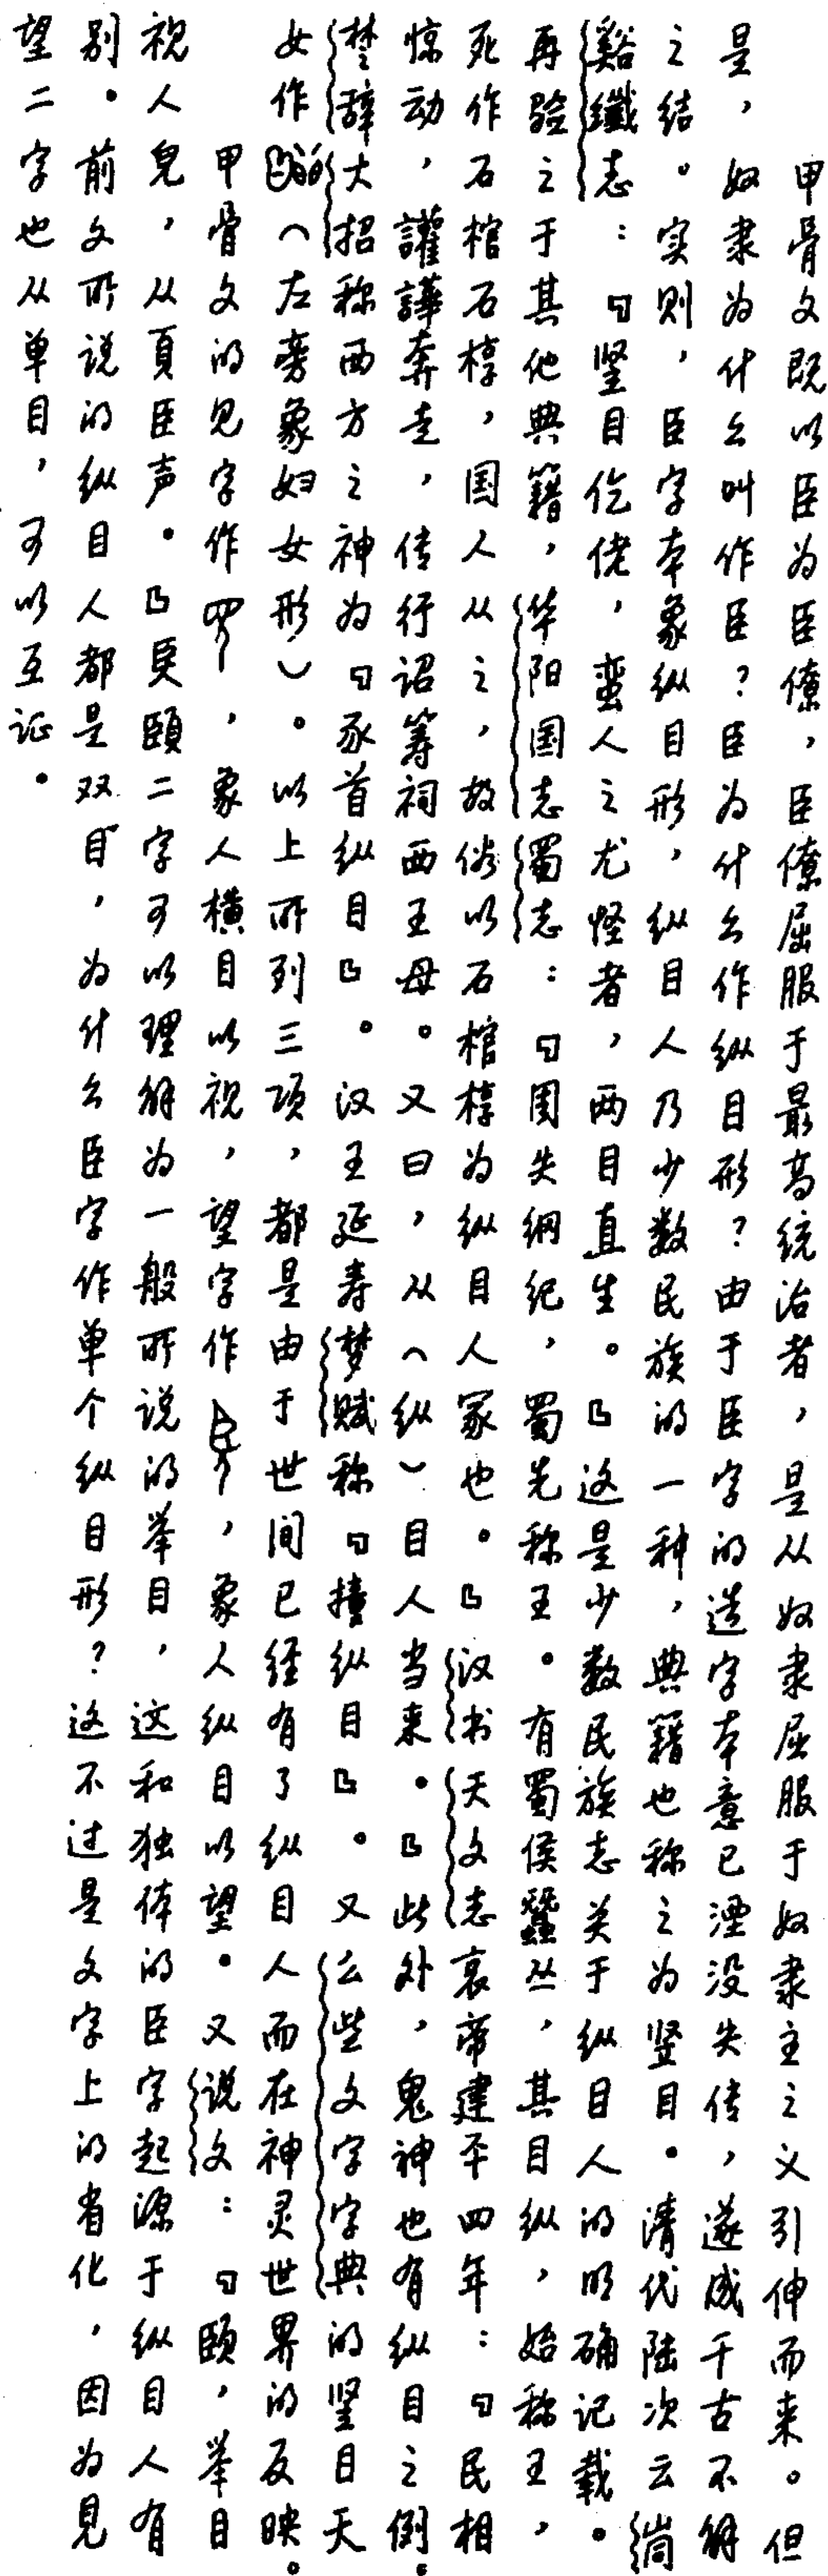 甲骨文既以臣为臣僚，臣僚屈服于最高统治者，是从奴隶屈服于奴隶主之义引伸而来。但
是，奴隶为什么叫作臣？臣为什么作纵目形？由于臣字的造字本意已湮没失传，遂成千古不解
之结。实则，臣字本象纵目形，纵目人乃少数民族的一种，典籍也称之为竖目。清代陆次云峒
谿纖志：「竖目仡佬，蛮人之尤怪者，两目直生。」这是少数民族志关于纵目人的明确记载。
再验之于其他典籍，华阳国志蜀志：「周失纲纪，蜀先称王。有蜀侯蠶丛，其目纵，始称王，
死作石棺石椁，国人从之，故俗以石棺椁为纵目人冢也。」汉书天文志哀帝建平四年：「民相
惊动，讙譁奔走，传行诏筹祠西王母。又曰，从（纵）目人当来。」此外，鬼神也有纵目之例。
楚辞大招称西方之神为「豕首纵目」。汉王延寿梦赋称「撞纵目」。又么些文字字典的竖目天
女作（左旁象妇女形）。以上所列三项，都是由于世间已经有了纵目人而在神灵世界的反映。
甲骨文的见字作，象人横目以视，望字作，象人纵目以望。又说文：「頤，举目
视人皃，从頁臣声。」臣頤二字可以理解为一般所说的举目，这和独体的臣字起源于纵目人有
别。前文所说的纵目人都是双目，为什么臣字作单个纵目形？这不过是文字上的省化，因为見
望二字也从单目，可以互证。